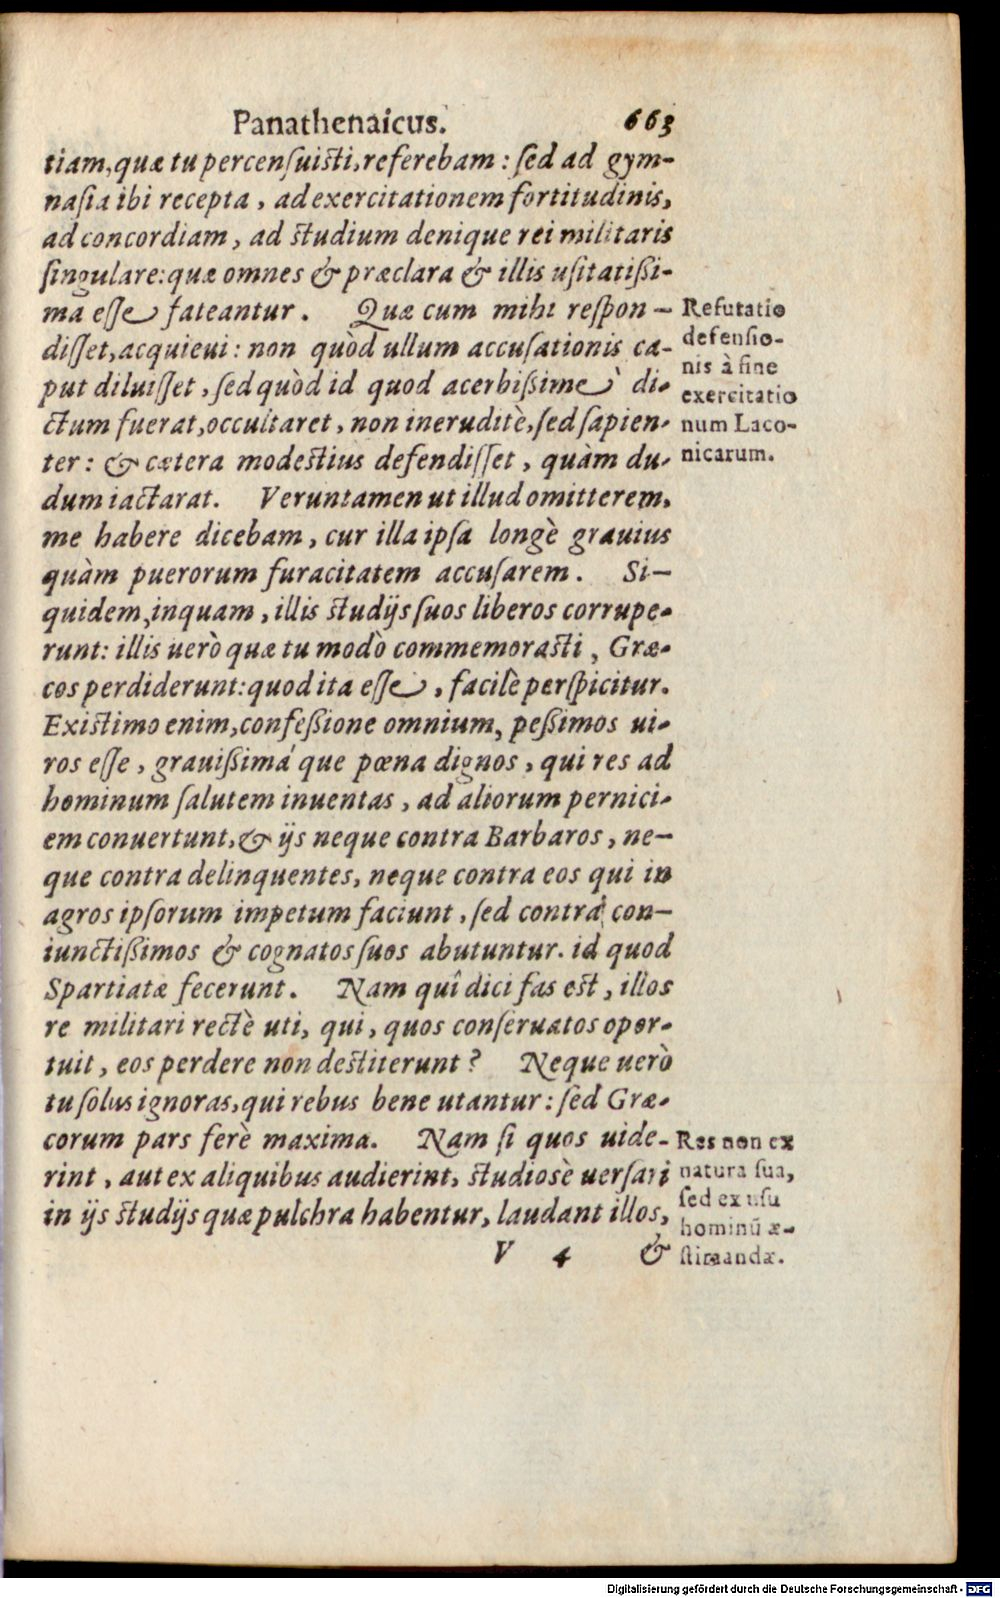 Panathenaicus. 663
tiam, quæ tu percensuisti, referebam : sed ad gym-
nasia ibi recepta, ad exercitationem fortitudinis,
ad concordiam, ad studium denique rei militaris
singulare: quæ omnes & præclara & illis usitatißi-
ma esse fateantur. Quæ cum mihi respon-
disset, acquieui : non quòd ullum accusationis ca-
put diluisset, sed quòd id quod acerbißimè di-
ctum fuerat, occultaret, non ineruditè, sed sapien-
ter : & cætera modestius defendisset, quàm du-
dum iactarat. Veruntamen ut illud omitterem,
me habere dicebam, cur illa ipsa longè grauius
quàm puerorum furacitatem accusarem. Si-
quidem, inquam, illis studijs suos liberos corrupe-
runt: illis uerò quæ tu modò commemorasti, Græ-
cos perdiderunt: quod ita esse, facilè perspicitur.
Existimo enim, confeßione omnium, peßimos ui-
ros esse, grauißimá que pœna dignos, qui res ad
hominum salutem inuentas, ad aliorum pernici-
em conuertunt, & ijs neque contra Barbaros, ne-
que contra delinquentes, neque contra eos qui in
agros ipsorum impetum faciunt, sed contra con-
iunctißimos & cognatos suos abutuntur. id quod
Spartiatæ fecerunt. Nam quî dici fas est, illos
re militari rectè uti, qui, quos conseruatos opor-
tuit, eos perdere non destiterunt ? Neque uerò
tu solus ignoras, qui rebus bene utantur : sed Græ-
corum pars ferè maxima. Nam si quos uide-
rint, aut ex aliquibus audierint, studiosè uersari
in ijs studijs quæ pulchra habentur, laudant illos,
V 4 &
Refutatio
defensio-
nis à fine
exercitatio
num Laco-
nicarum.
Res non ex
natura sua,
sed ex usu
hominū æ-
stimandæ.
Digitalisierung gefördert durch die Deutsche Forschungsgemeinschaft - DFG